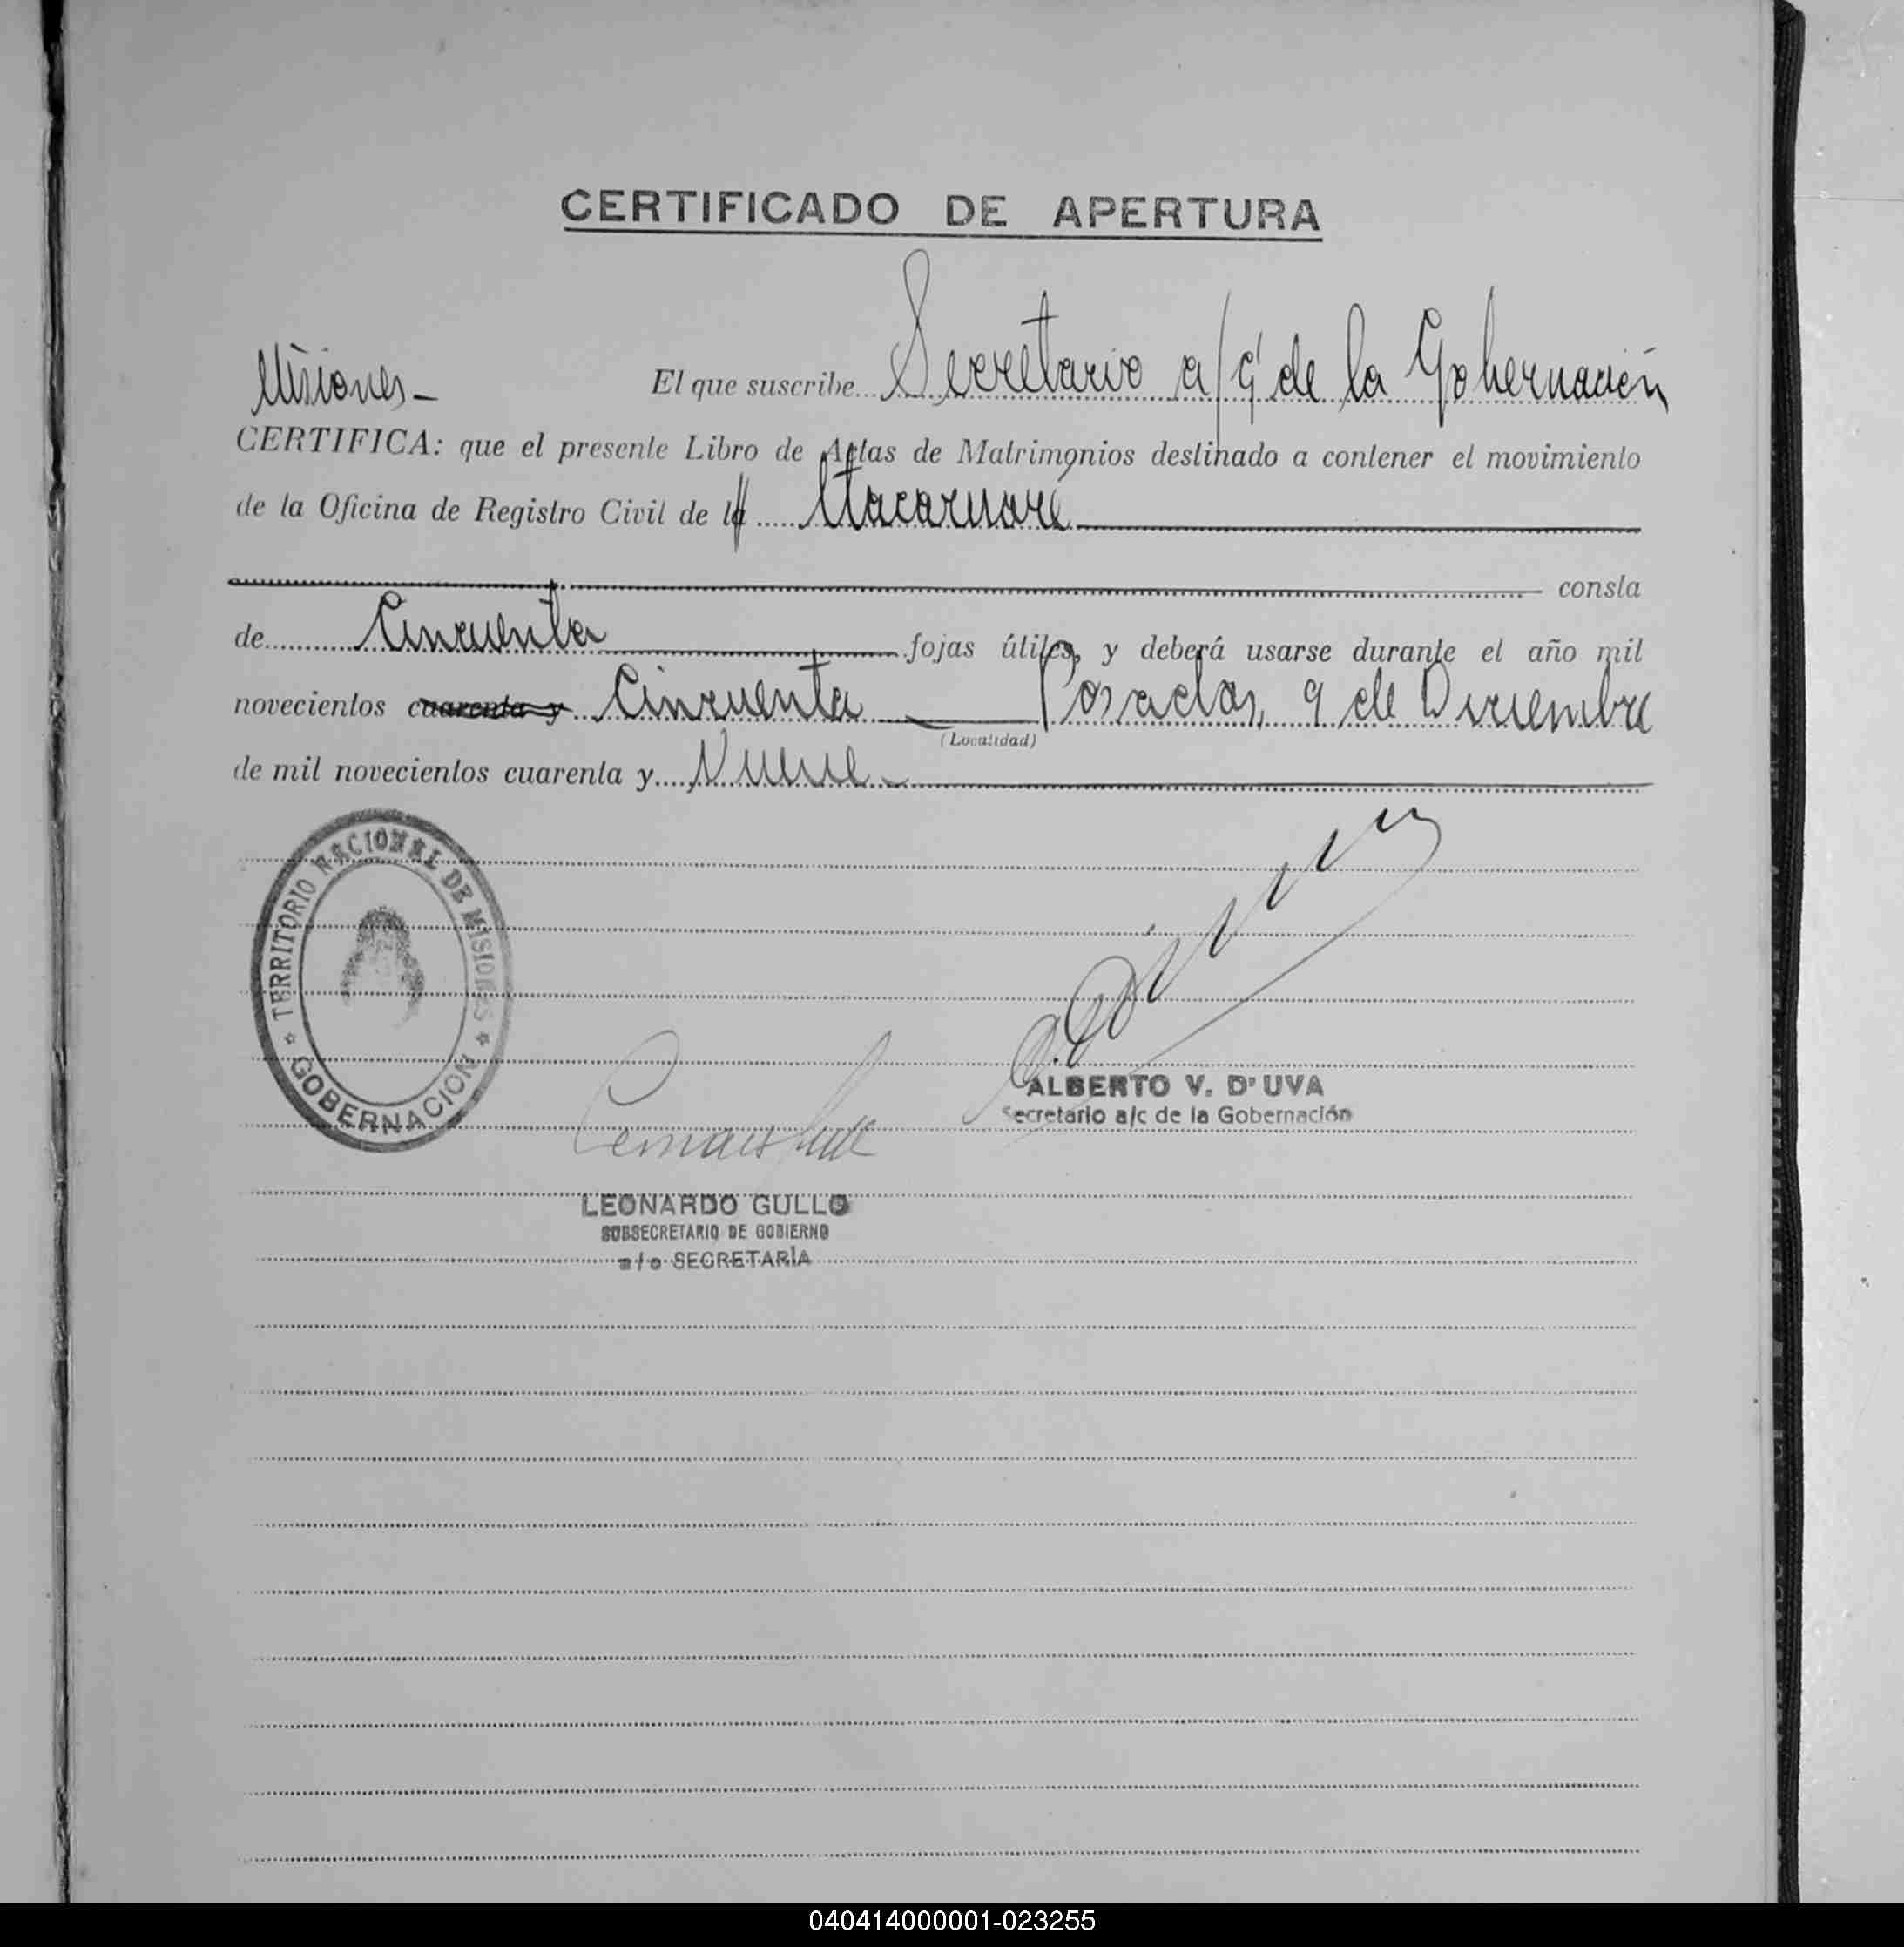 CERTIFICADO DE APERTURA
Misiones - El que suscribe Secretario a/c de la Gobernación
CERTIFICA: que el presente Libro de Actas de Matrimonios destinado a contener el movimiento
de la Oficina de Registro Civil de la Itacaruaré
consta
de Cincuenta fojas útiles, y deberá usarse durante el año mil
novecientos cuarenta y Cincuenta Posadas, 9 de Diciembre
(Localidad)
de mil novecientos cuarenta y Nueve
TERRITORIO NACIONAL DE MISIONES
GOBERNACION
ALBERTO V. D'UVA
Secretario a/c de la Gobernación
LEONARDO GULLO
SUBSECRETARIO DE GOBIERNO
a/c SECRETARÍA
040414000001-023255